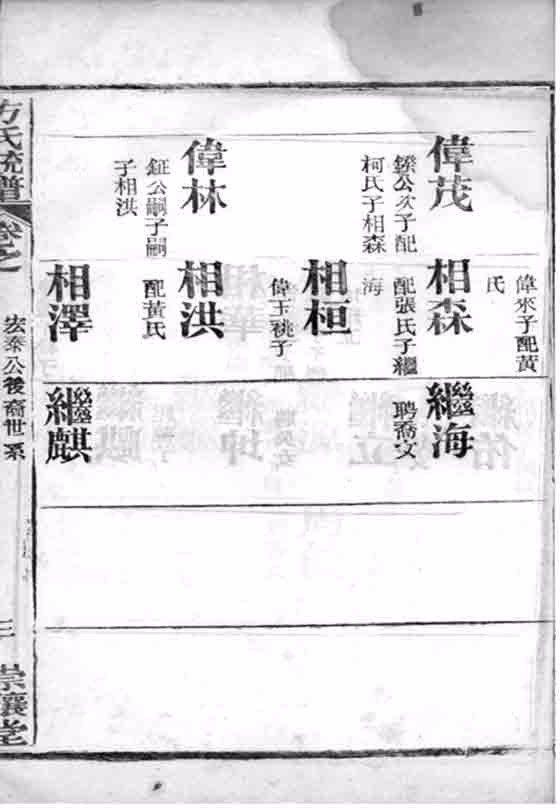 偉茂
鎵公次子配
柯氏子相森
偉林
鉦公嗣子嗣
子相洪
偉來子配黃
氏
相森
配張氏子繼
海
相桓
偉玉祧子
相洪
配黃氏
相澤
繼海
聘喬文
繼麒
方氏統譜
卷之
宏泰公後裔世系
三
崇讓堂